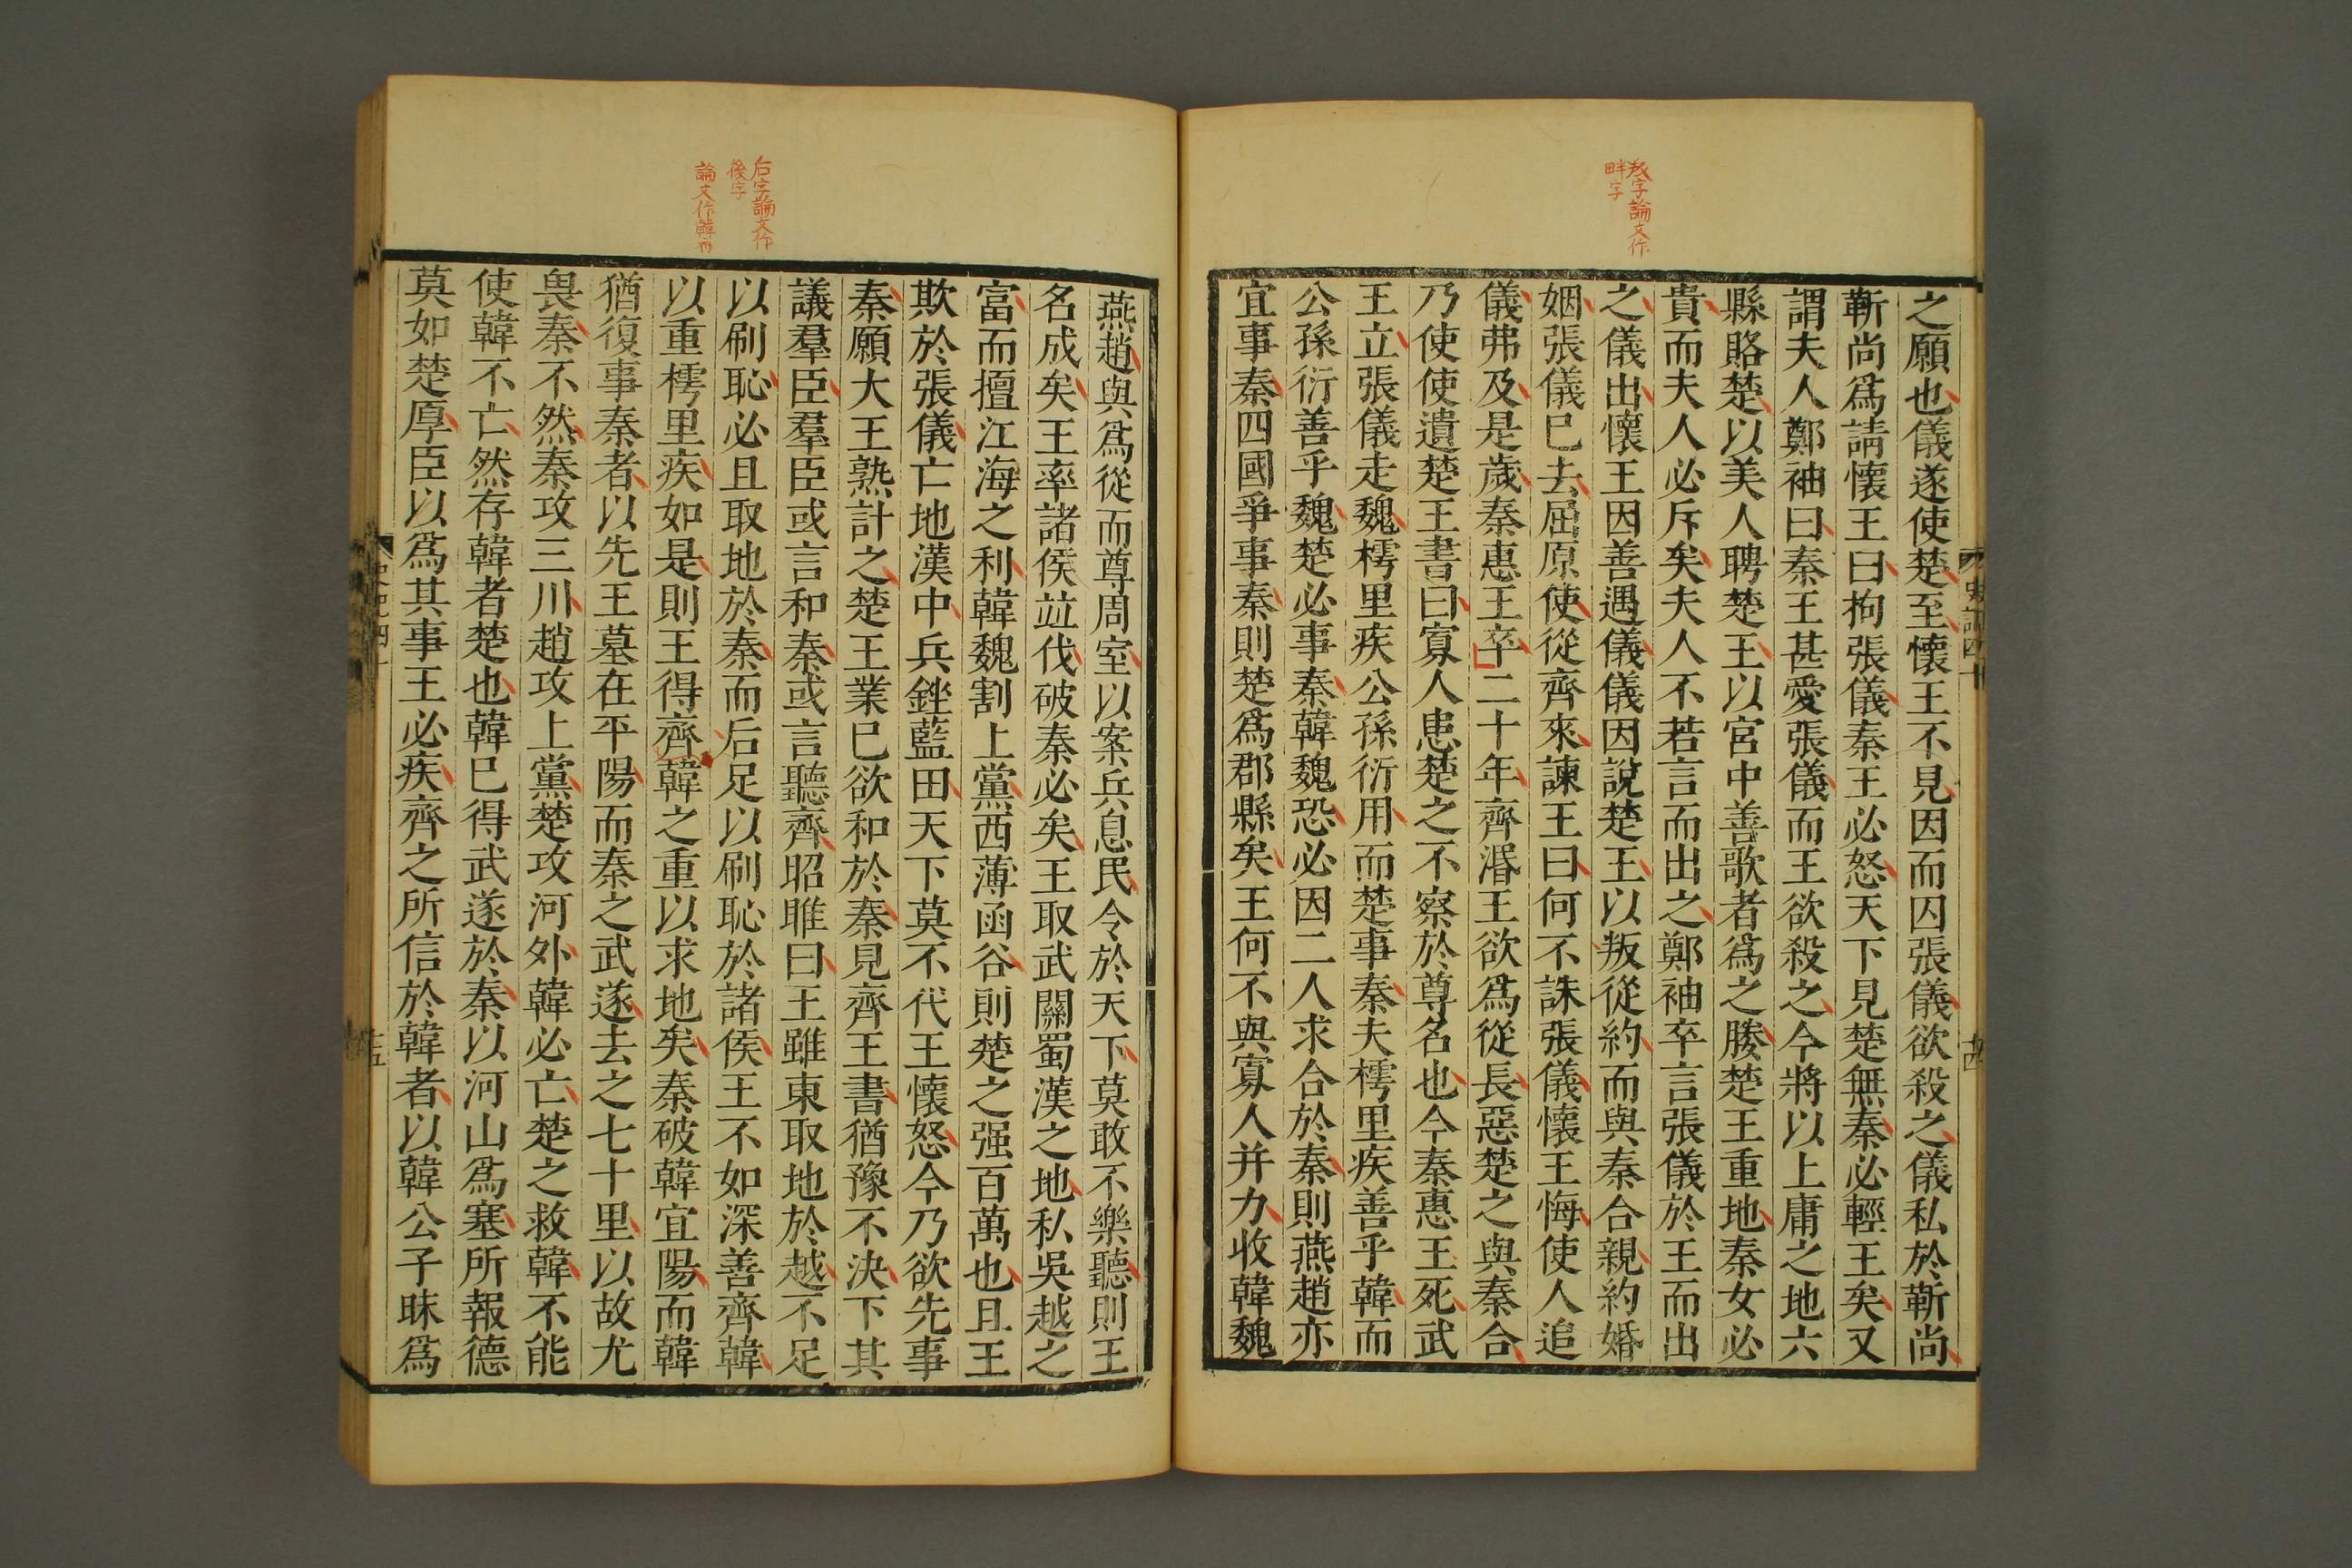 叛字論文作
畔字
之願也儀遂使楚至懷王不見因而囚張儀欲殺之儀私於靳尚
靳尚爲請懷王曰拘張儀秦王必怒天下見楚無秦必輕王矣又
謂夫人鄭袖曰秦王甚愛張儀而王欲殺之今將以上庸之地六
縣賂楚以美人聘楚王以宮中善歌者爲之媵楚王重地秦女必
貴而夫人必斥矣夫人不若言而出之鄭袖卒言張儀於王而出
之儀出懷王因善遇儀儀因說楚王以叛從約而與秦合親約婚
姻張儀已去屈原使從齊來諫王曰何不誅張儀懷王悔使人追
儀弗及是歲秦惠王卒二十年齊湣王欲爲從長惡楚之與秦合
乃使使遺楚王書曰寡人患楚之不察於尊名也今秦惠王死武
王立張儀走魏樗里疾公孫衍用而楚事秦夫樗里疾善乎韓而
公孫衍善乎魏楚必事秦韓魏恐必因二人求合於秦則燕趙亦
宜事秦四國爭事秦則楚爲郡縣矣王何不與寡人并力收韓魏
后字論文作
後字
論文作韓
燕趙與爲從而尊周室以案兵息民令於天下莫敢不樂聽則王
名成矣王率諸侯竝伐破秦必矣王取武關蜀漢之地私吳越之
富而擅江海之利韓魏割上黨西薄函谷則楚之强百萬也且王
欺於張儀亡地漢中兵銼藍田天下莫不代王懷怒今乃欲先事
秦願大王熟計之楚王業已欲和於秦見齊王書猶豫不決下其
議羣臣羣臣或言和秦或言聽齊昭睢曰王雖東取地於越不足
以刷恥必且取地於秦而后足以刷恥於諸侯王不如深善齊韓
以重樗里疾如是則王得齊韓之重以求地矣秦破韓宜陽而韓
猶復事秦者以先王墓在平陽而秦之武遂去之七十里以故尤
畏秦不然秦攻三川趙攻上黨楚攻河外韓必亡楚之救韓不能
使韓不亡然存韓者楚也韓已得武遂於秦以河山爲塞所報德
莫如楚厚臣以爲其事王必疾齊之所信於韓者以韓公子眛爲